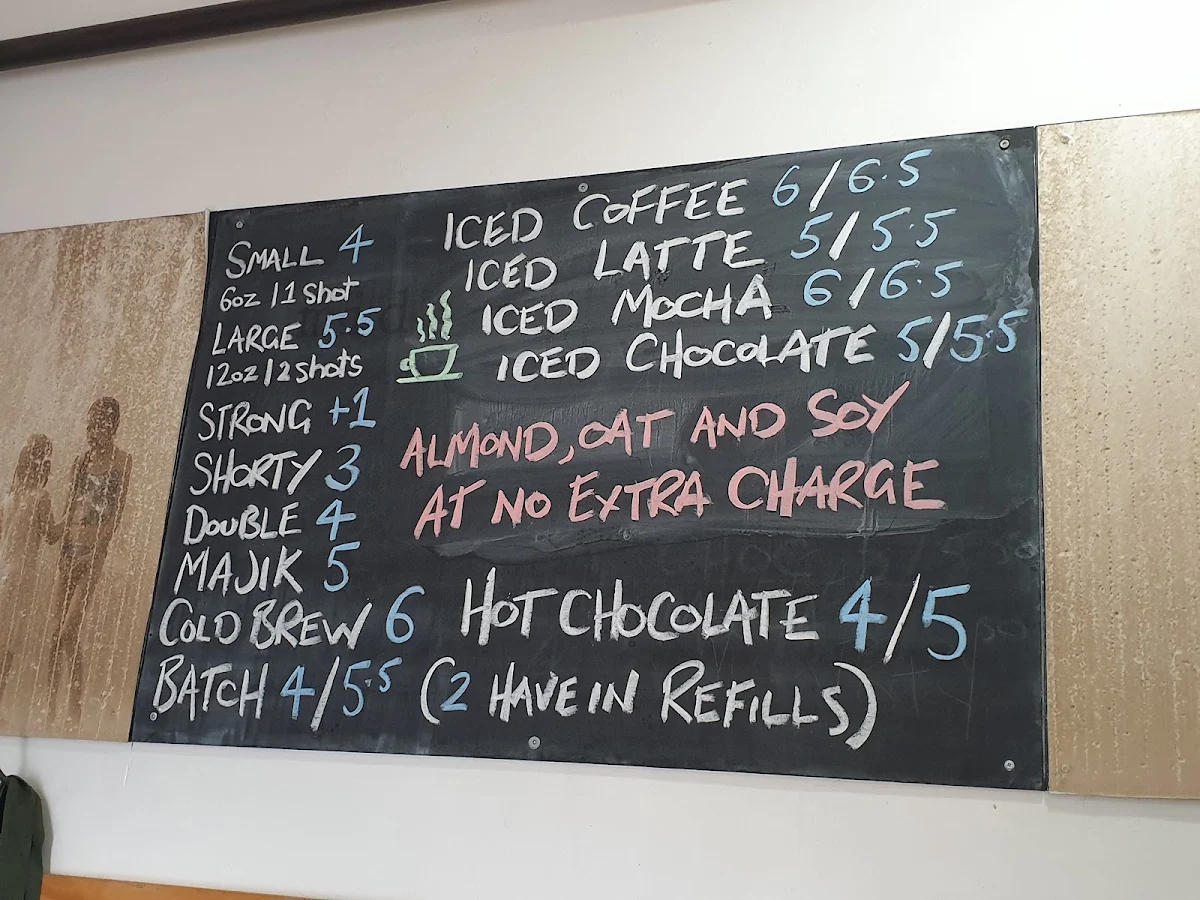 SMALL 4
6oz / 1 shot
LARGE 5.5
12oz / 2 shots
STRONG +1
SHORTY 3
DOUBLE 4
MAJIK 5
COLD BREW 6
BATCH 4/5.5 (2 HAVE IN REFILLS)
ICED COFFEE 6/6.5
ICED LATTE 5/5.5
ICED MOCHA 6/6.5
ICED CHOCOLATE 5/5.5
ALMOND, OAT AND SOY
AT NO EXTRA CHARGE
HOT CHOCOLATE 4/5